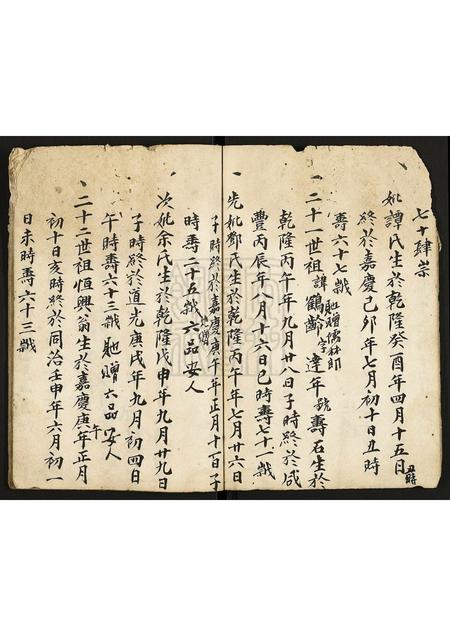 七十肆崇
妣譚氏生於乾隆癸酉年四月十五日丑時
終於嘉慶己卯年七月初十日丑時
壽六十七歲
二十一世祖貤贈儒林郎諱鶴齡字達年號壽石生於
乾隆丙午年九月廿八日子時終於咸
豐丙辰年八月十六日巳時壽七十一歲
先妣鄧氏生於乾隆丙午年七月廿六日
子時終於嘉慶庚午年正月十一日子
時壽二十五歲貤贈六品安人
次妣余氏生於乾隆戊申年九月廿九日
子時終於道光庚戌年九月初四日
午時壽六十三歲貤贈六品安人
二十二世祖恒興翁生於嘉慶庚午年正月
初十日亥時終於同治壬申年六月初一
日未時壽六十三歲